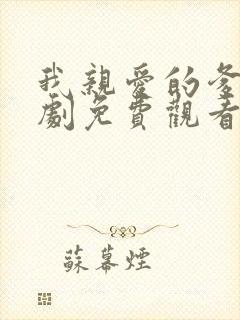 我親愛的爹
劇免費觀看
蘇幕煙